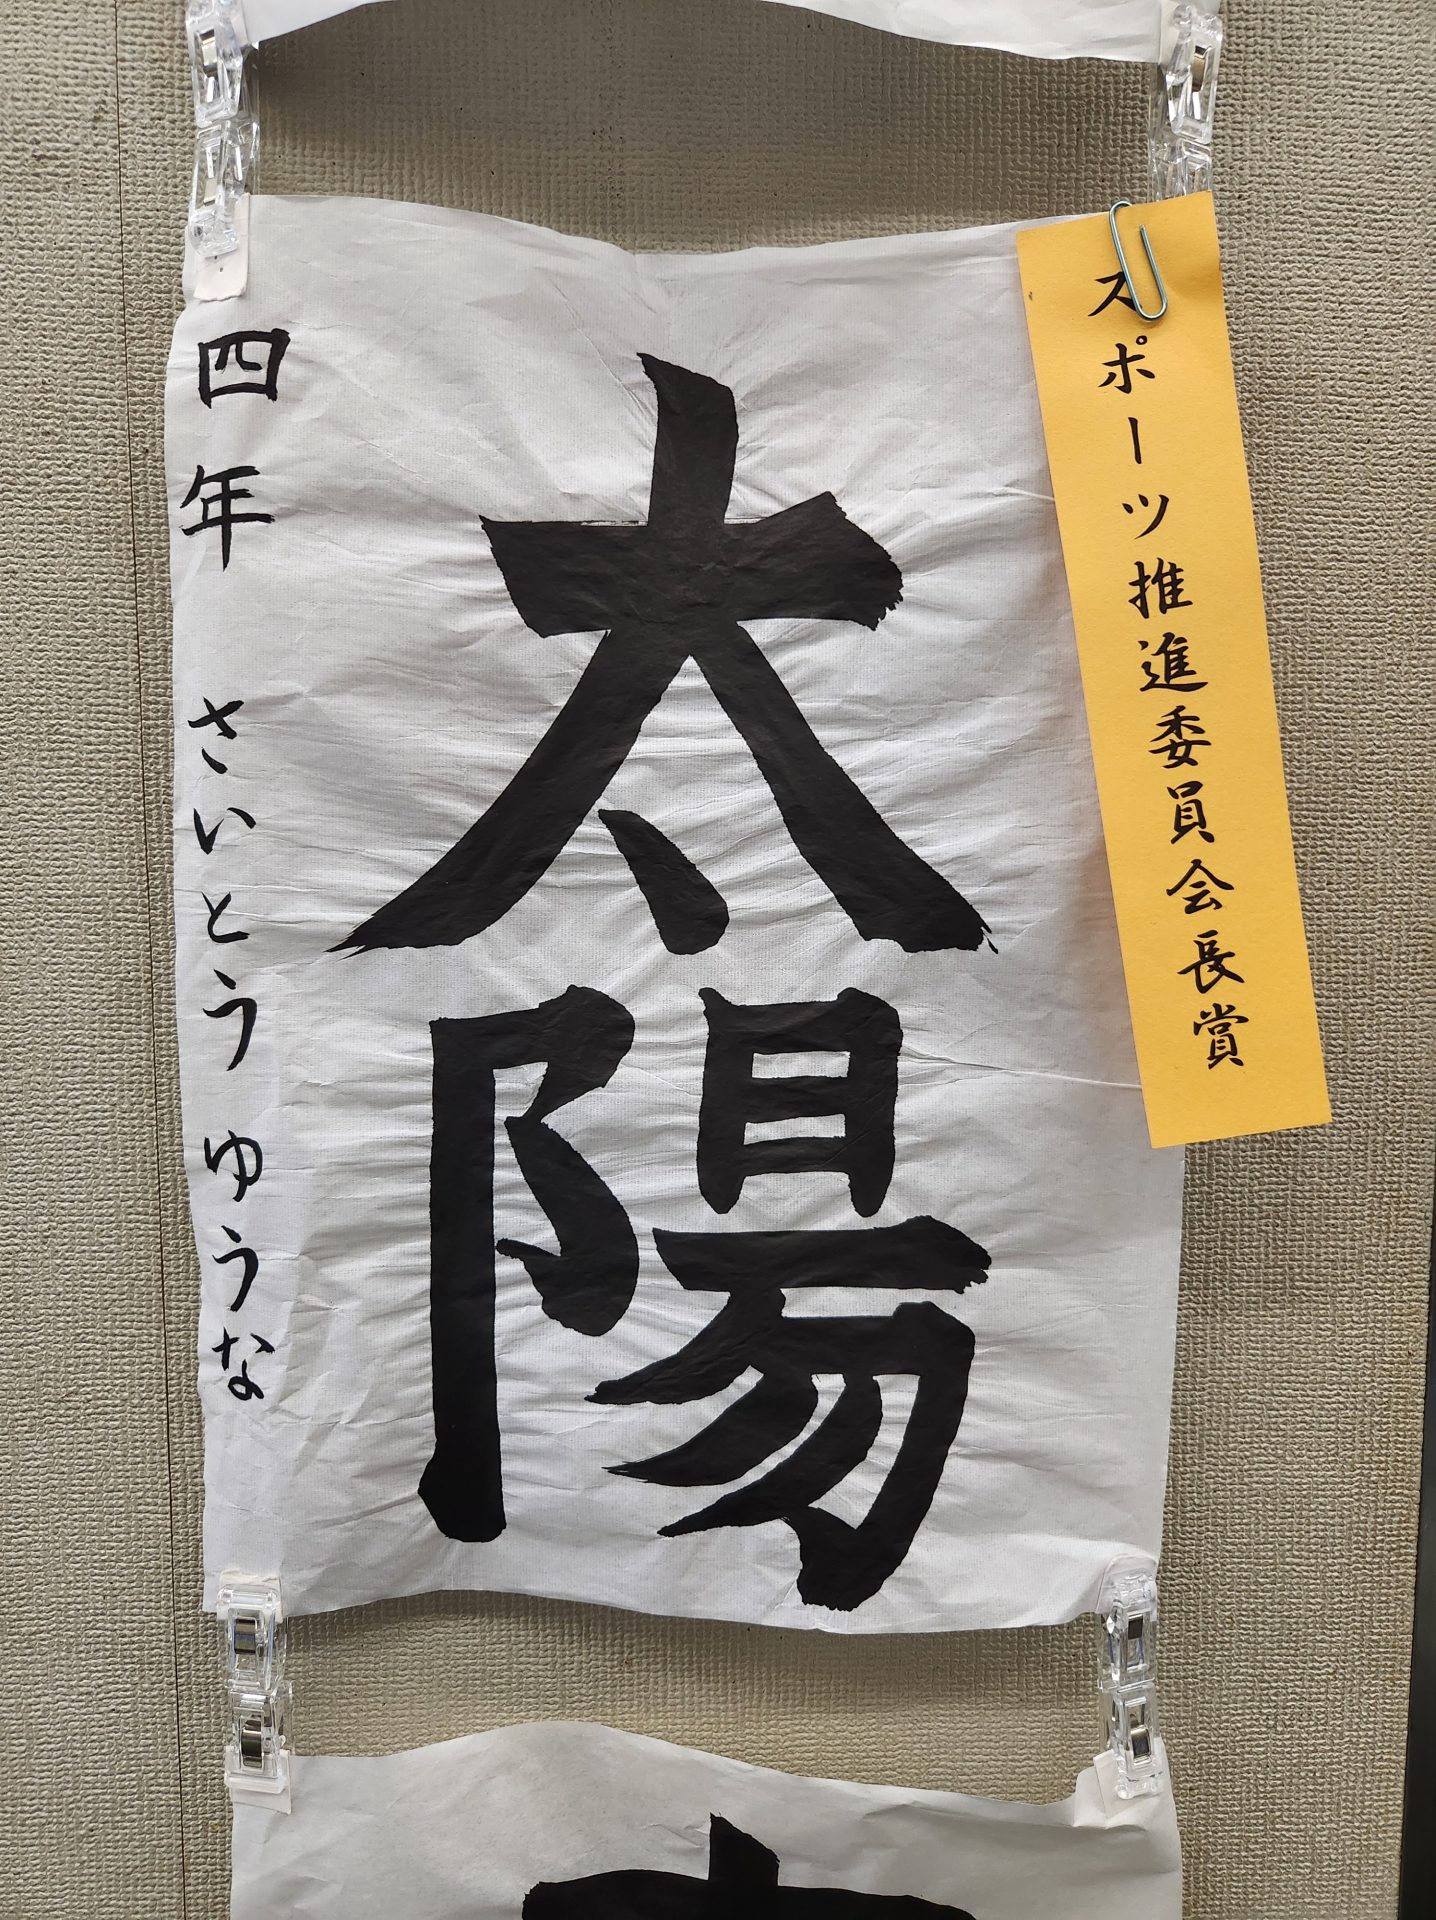 スポーツ推進委員会長賞
太陽
四年 さいとうゆうな